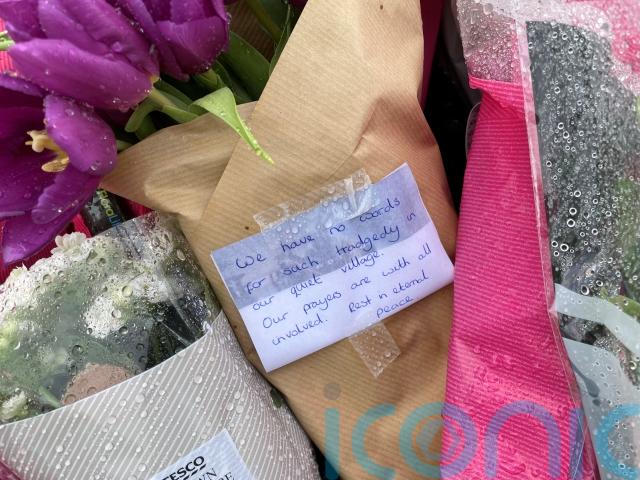 We have no words
for such tradgedy in
our quiet village.
Our prayers are with all
involved. Rest in eternal
peace
TESCO
iconic